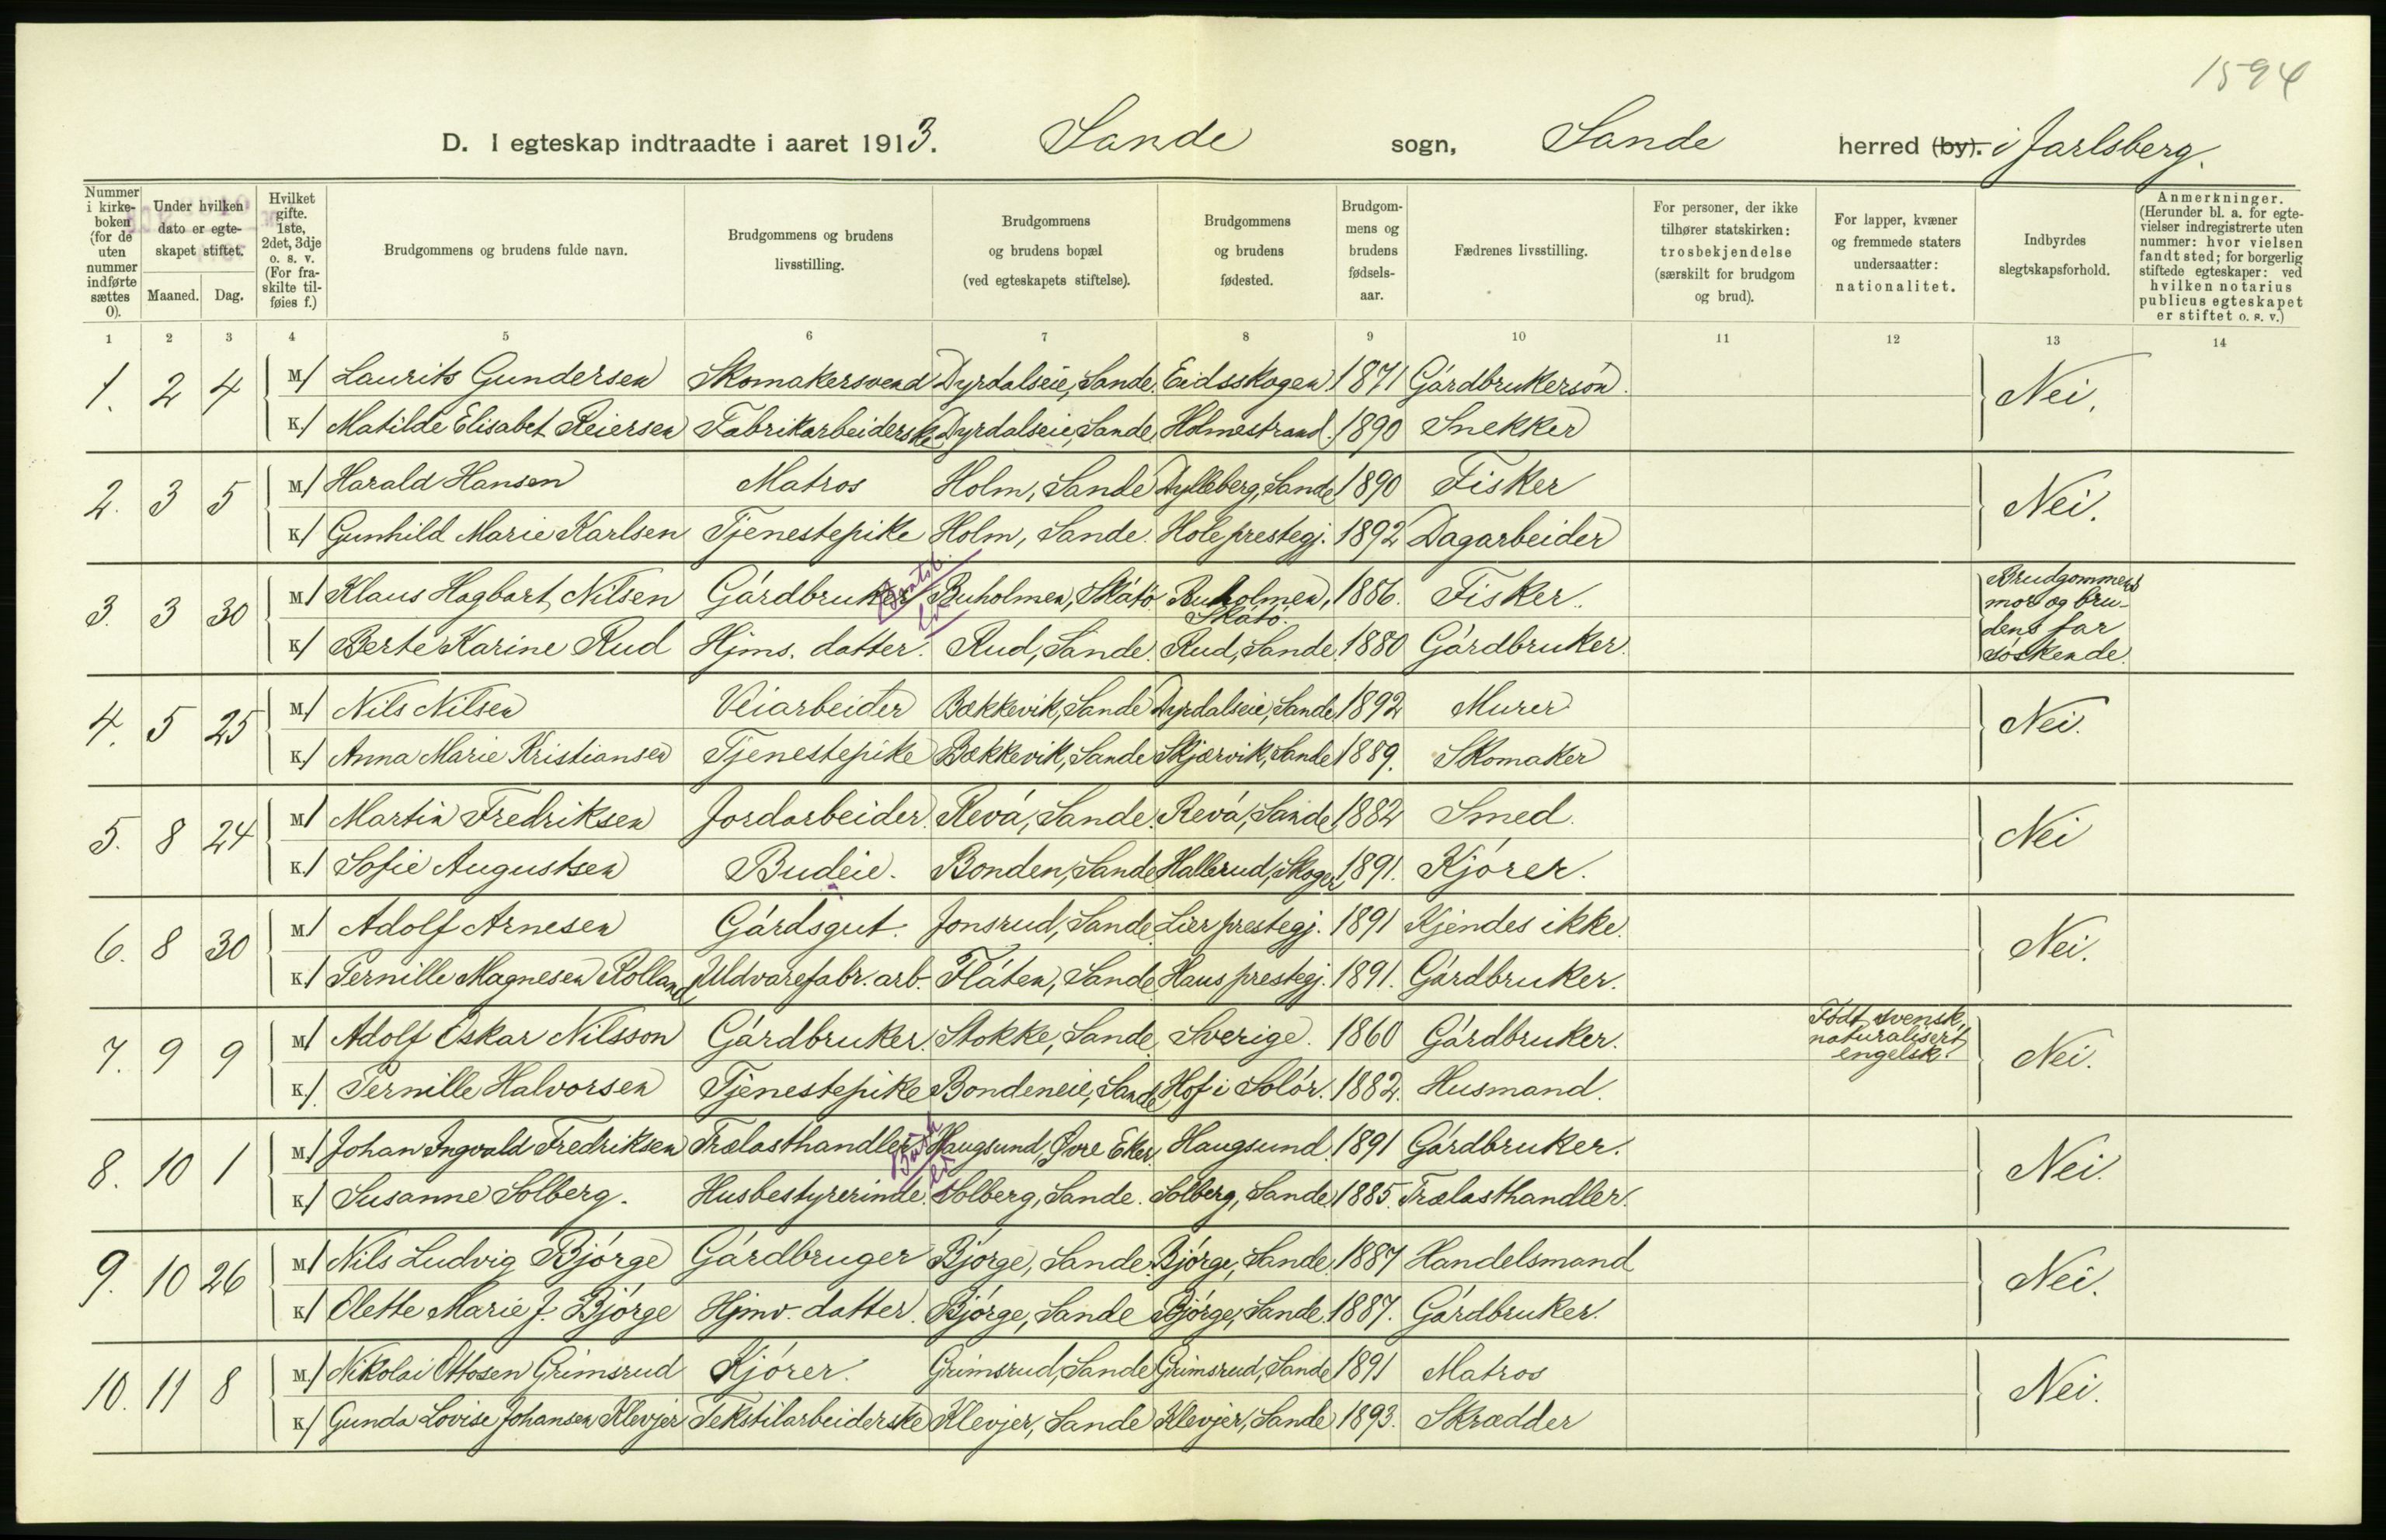 1594
D. I egteskap indtraadte i aaret 1913. Sande sogn, Sande herred (by). i Jarlsberg.
Nummer i kirkeboken (for de uten nummer indførte sættes 0). | Under hvilken dato er egteskapet stiftet. Maaned. Dag. | Hvilket gifte. 1ste, 2det, 3dje o. s. v. (For fraskilte tilføies f.) | Brudgommens og brudens fulde navn. | Brudgommens og brudens livsstilling. | Brudgommens og brudens bopæl (ved egteskapets stiftelse). | Brudgommens og brudens fødested. | Brudgommens og brudens fødselsaar. | Fædrenes livsstilling. | For personer, der ikke tilhører statskirken: trosbekjendelse (særskilt for brudgom og brud). | For lapper, kvæner og fremmede staters undersaatter: nationalitet. | Indbyrdes slegtskapsforhold. | Anmerkninger. (Herunder bl. a. for egtevielser indregistrerte uten nummer: hvor vielsen fandt sted; for borgerlig stiftede egteskaper: ved hvilken notarius publicus egteskapet er stiftet o. s. v.)
1 2 3 4 5 6 7 8 9 10 11 12 13 14
1. 2 4 M/ Laurits Gundersen Skomakersvend Dyrdalseie, Sande. Eidsskogen 1871 Gårdbrukersön. Nei.
K/ Matilde Elisabet Reiersen Fabrikarbeiderske Dyrdalseie, Sande Holmestrand. 1890 Snekker
2. 3 5 M/ Harald Hansen Matros Holm, Sande Dylleberg, Sande 1890 Fisker Nei.
K/ Gunhild Marie Karlsen Tjenestepike Holm, Sande. Hole prestegj. 1892 Dagarbeider
3. 3 30 M/ Klaus Hagbart Nilsen Gårdbruker Buholmen, Skåtö Buholmen, Skåtö. 1886. Fisker. Brudgommens mor og brudens far söskende.
K/ Berte Karine Rud Hjms. datter. Rud, Sande. Rud, Sande. 1880 Gårdbruker.
4. 5 25 M/ Nils Nilsen Veiarbeider Bækkevik, Sande Dyrdalseie, Sande 1892 Murer Nei.
K/ Anna Marie Kristiansen Tjenestepike Bækkevik, Sande Skjærvik, Sande 1889. Skomaker
5. 8 24 M/ Martin Fredriksen Jordarbeider. Revå, Sande. Revå, Sande 1882 Smed. Nei
K/ Sofie Augustsen Budeie. Bonden, Sande Hallerud, Skoger 1891. Kjörer.
6. 8 30 M/ Adolf Arnesen Gårdsgut. Jonsrud, Sande Lier prestegj. 1891 Kjendes ikke. Nei.
K/ Pernille Magnesen Rolland Uldvarefabr. arb. Flåten, Sande Haus prestegj. 1891. Gårdbruker.
7. 9 9 M/ Adolf Oskar Nilsson Gårdbruker. Stokke, Sande Sverige. 1860 Gårdbruker. Födt svensk, naturalisert engelsk. Nei.
K/ Pernille Halvorsen Tjenestepike Bondeneie, Sande Hof i Solör. 1882. Husmand.
8. 10 1 M/ Johan Ingvald Fredriksen Trælasthandler Haugsund, Øvre Eker. Haugsund. 1891 Gårdbruker. Nei.
K/ Susanne Solberg. Husbestyrerinde Solberg, Sande. Solberg, Sande 1885. Trælasthandler.
9. 10 26 M/ Nils Ludvig Bjørge Gårdbruger Bjørge, Sande Bjørge, Sande. 1887 Handelsmand Nei.
K/ Olette Marie J. Bjørge Hjmv. datter. Bjørge, Sande Bjørge, Sande. 1887. Gårdbruker.
10. 11 8 M/ Nikolai Ottosen Grimsrud Kjörer. Grimsrud, Sande Grimsrud, Sande 1891 Matros Nei.
K/ Gunda Lovise Johansen Klevjer Tekstilarbeiderske Klevjer, Sande Klevjer, Sande 1893. Skrædder